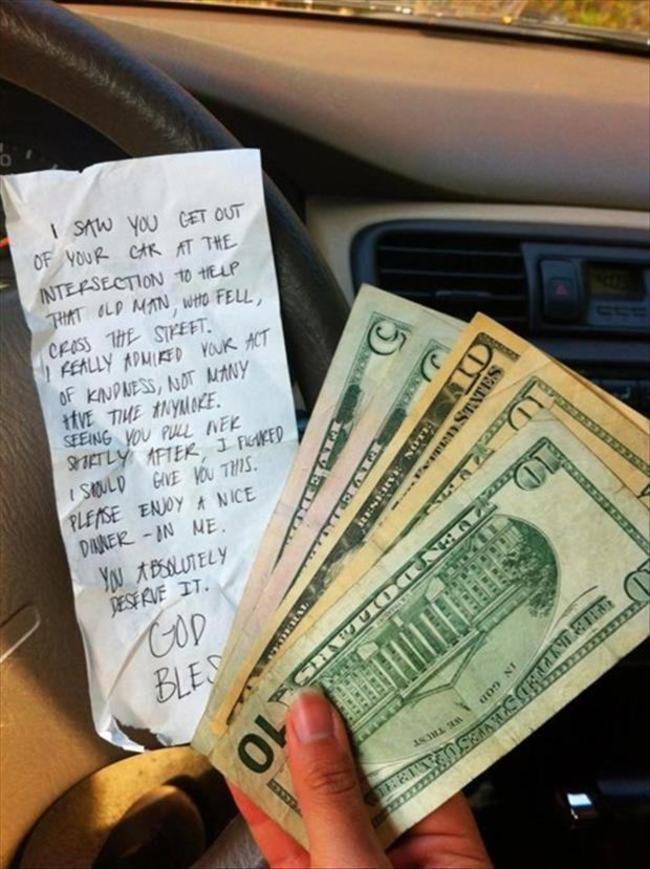 I SAW YOU GET OUT
OF YOUR CAR AT THE
INTERSECTION TO HELP
THAT OLD MAN, WHO FELL,
CROSS THE STREET.
I REALLY ADMIRED YOUR ACT
OF KINDNESS, NOT MANY
HAVE TIME ANYMORE.
SEEING YOU PULL OVER
SHORTLY AFTER, I FIGURED
I SHOULD GIVE YOU THIS.
PLEASE ENJOY A NICE
DINNER - ON ME.
YOU ABSOLUTELY
DESERVE IT.
GOD
BLES
FEDERAL RESERVE NOTE
10
IN GOD
WE TRUST